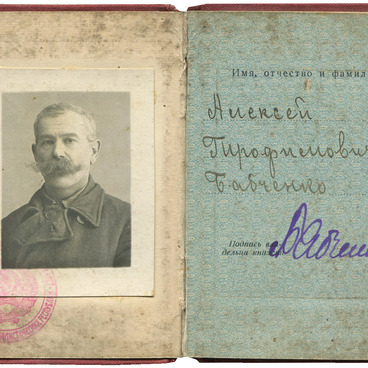 Имя, отчество и фамил
Алексей
Трофимович
Бабченко
Подпись в
дельца книж